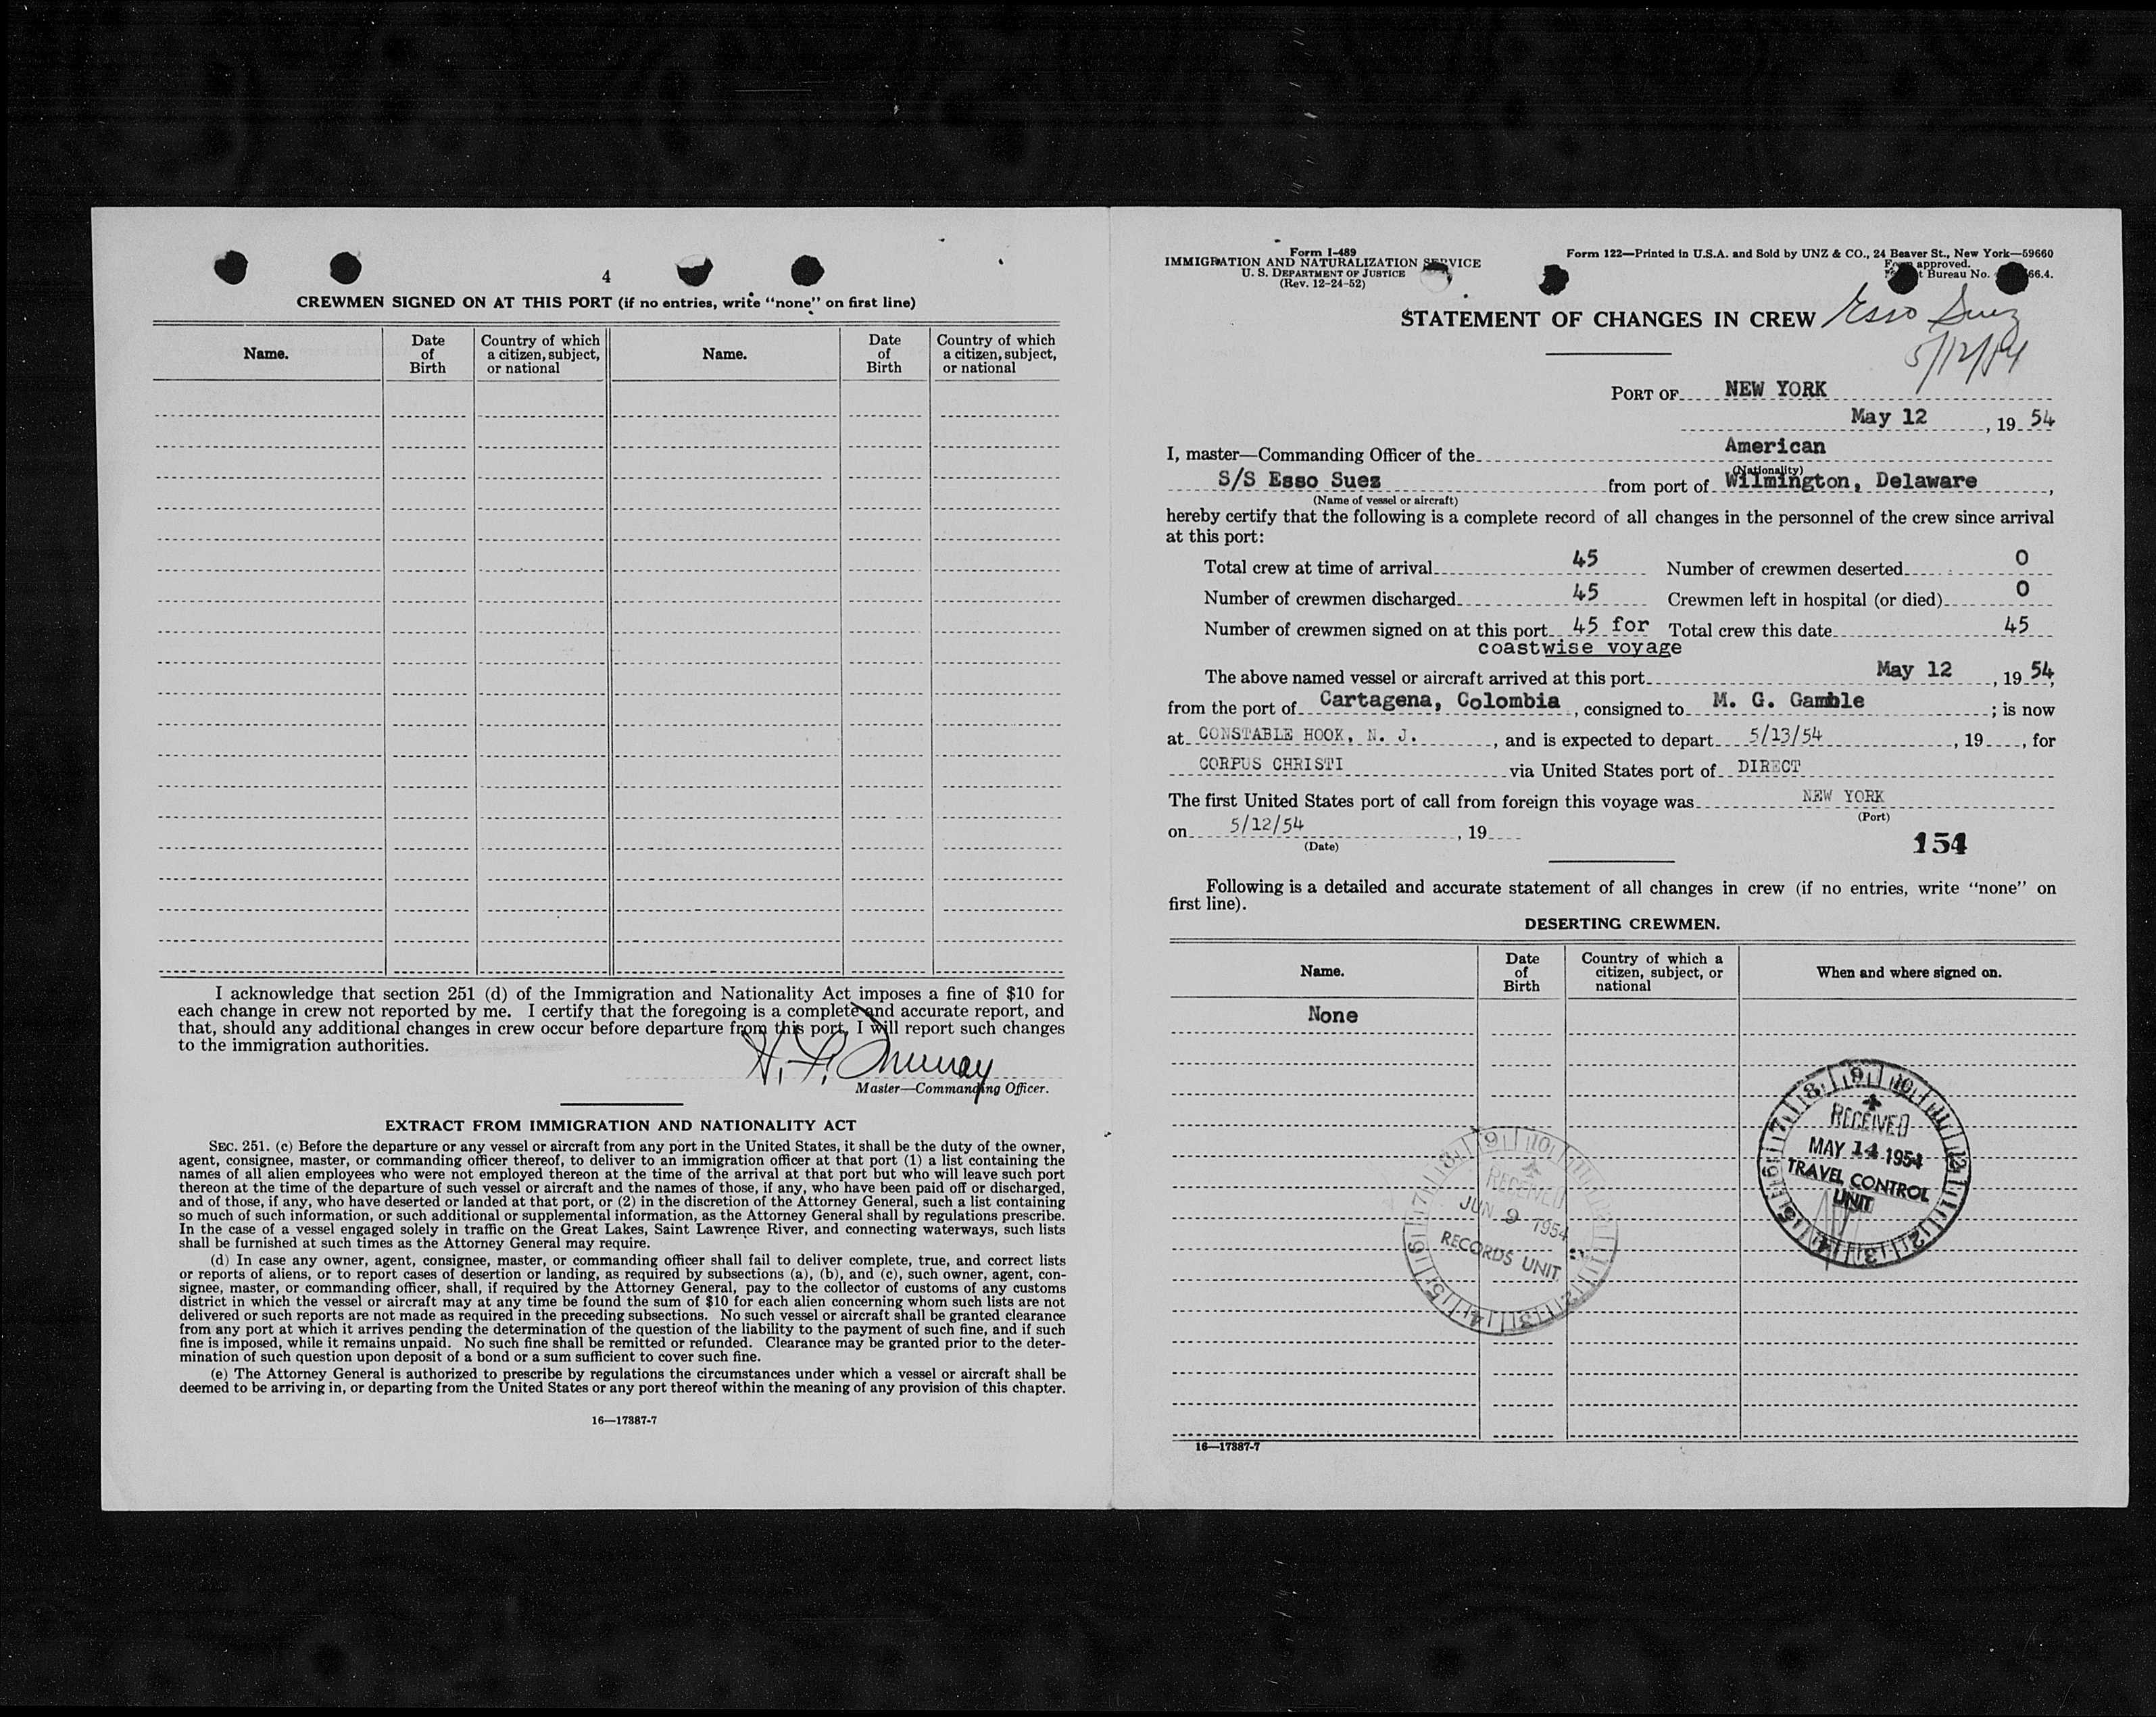 4
CREWMEN SIGNED ON AT THIS PORT (if no entries, write "none" on first line)
Name.
Date of Birth
Country of which a citizen, subject, or national
Name.
Date of Birth
Country of which a citizen, subject, or national
I acknowledge that section 251 (d) of the Immigration and Nationality Act imposes a fine of $10 for
each change in crew not reported by me. I certify that the foregoing is a complete and accurate report, and
that, should any additional changes in crew occur before departure from this port, I will report such changes
to the immigration authorities.
Master—Commanding Officer.
EXTRACT FROM IMMIGRATION AND NATIONALITY ACT
SEC. 251. (c) Before the departure or any vessel or aircraft from any port in the United States, it shall be the duty of the owner,
agent, consignee, master, or commanding officer thereof, to deliver to an immigration officer at that port (1) a list containing the
names of all alien employees who were not employed thereon at the time of the arrival at that port but who will leave such port
thereon at the time of the departure of such vessel or aircraft and the names of those, if any, who have been paid off or discharged,
and of those, if any, who have deserted or landed at that port, or (2) in the discretion of the Attorney General, such a list containing
so much of such information, or such additional or supplemental information, as the Attorney General shall by regulations prescribe.
In the case of a vessel engaged solely in traffic on the Great Lakes, Saint Lawrence River, and connecting waterways, such lists
shall be furnished at such times as the Attorney General may require.
(d) In case any owner, agent, consignee, master, or commanding officer shall fail to deliver complete, true, and correct lists
or reports of aliens, or to report cases of desertion or landing, as required by subsections (a), (b), and (c), such owner, agent, con-
signee, master, or commanding officer, shall, if required by the Attorney General, pay to the collector of customs of any customs
district in which the vessel or aircraft may at any time be found the sum of $10 for each alien concerning whom such lists are not
delivered or such reports are not made as required in the preceding subsections. No such vessel or aircraft shall be granted clearance
from any port at which it arrives pending the determination of the question of the liability to the payment of such fine, and if such
fine is imposed, while it remains unpaid. No such fine shall be remitted or refunded. Clearance may be granted prior to the deter-
mination of such question upon deposit of a bond or a sum sufficient to cover such fine.
(e) The Attorney General is authorized to prescribe by regulations the circumstances under which a vessel or aircraft shall be
deemed to be arriving in, or departing from the United States or any port thereof within the meaning of any provision of this chapter.
16—17387-7
Form I-489
IMMIGRATION AND NATURALIZATION SERVICE
U. S. DEPARTMENT OF JUSTICE
(Rev. 12-24-52)
Form 122—Printed in U.S.A. and Sold by UNZ & CO., 24 Beaver St., New York—59660
Form approved.
Bureau No. 66.4.
STATEMENT OF CHANGES IN CREW
Esso Suez
5/12/54
PORT OF NEW YORK
May 12, 19 54
I, master—Commanding Officer of the American
(Nationality)
S/S Esso Suez from port of Wilmington, Delaware,
(Name of vessel or aircraft)
hereby certify that the following is a complete record of all changes in the personnel of the crew since arrival
at this port:
Total crew at time of arrival 45 Number of crewmen deserted 0
Number of crewmen discharged 45 Crewmen left in hospital (or died) 0
Number of crewmen signed on at this port 45 for Total crew this date 45
coastwise voyage
The above named vessel or aircraft arrived at this port May 12, 19 54,
from the port of Cartagena, Colombia, consigned to M. G. Gamble; is now
at CONSTABLE HOOK, N. J., and is expected to depart 5/13/54, 19, for
CORPUS CHRISTI via United States port of DIRECT
The first United States port of call from foreign this voyage was NEW YORK
(Port)
on 5/12/54, 19
(Date)
154
Following is a detailed and accurate statement of all changes in crew (if no entries, write "none" on
first line).
DESERTING CREWMEN.
Name.
Date of Birth
Country of which a citizen, subject, or national
When and where signed on.
None
RECEIVED
MAY 14 1954
TRAVEL CONTROL
UNIT
RECEIVED
JUN 9 1954
RECORDS UNIT
16—17387-7